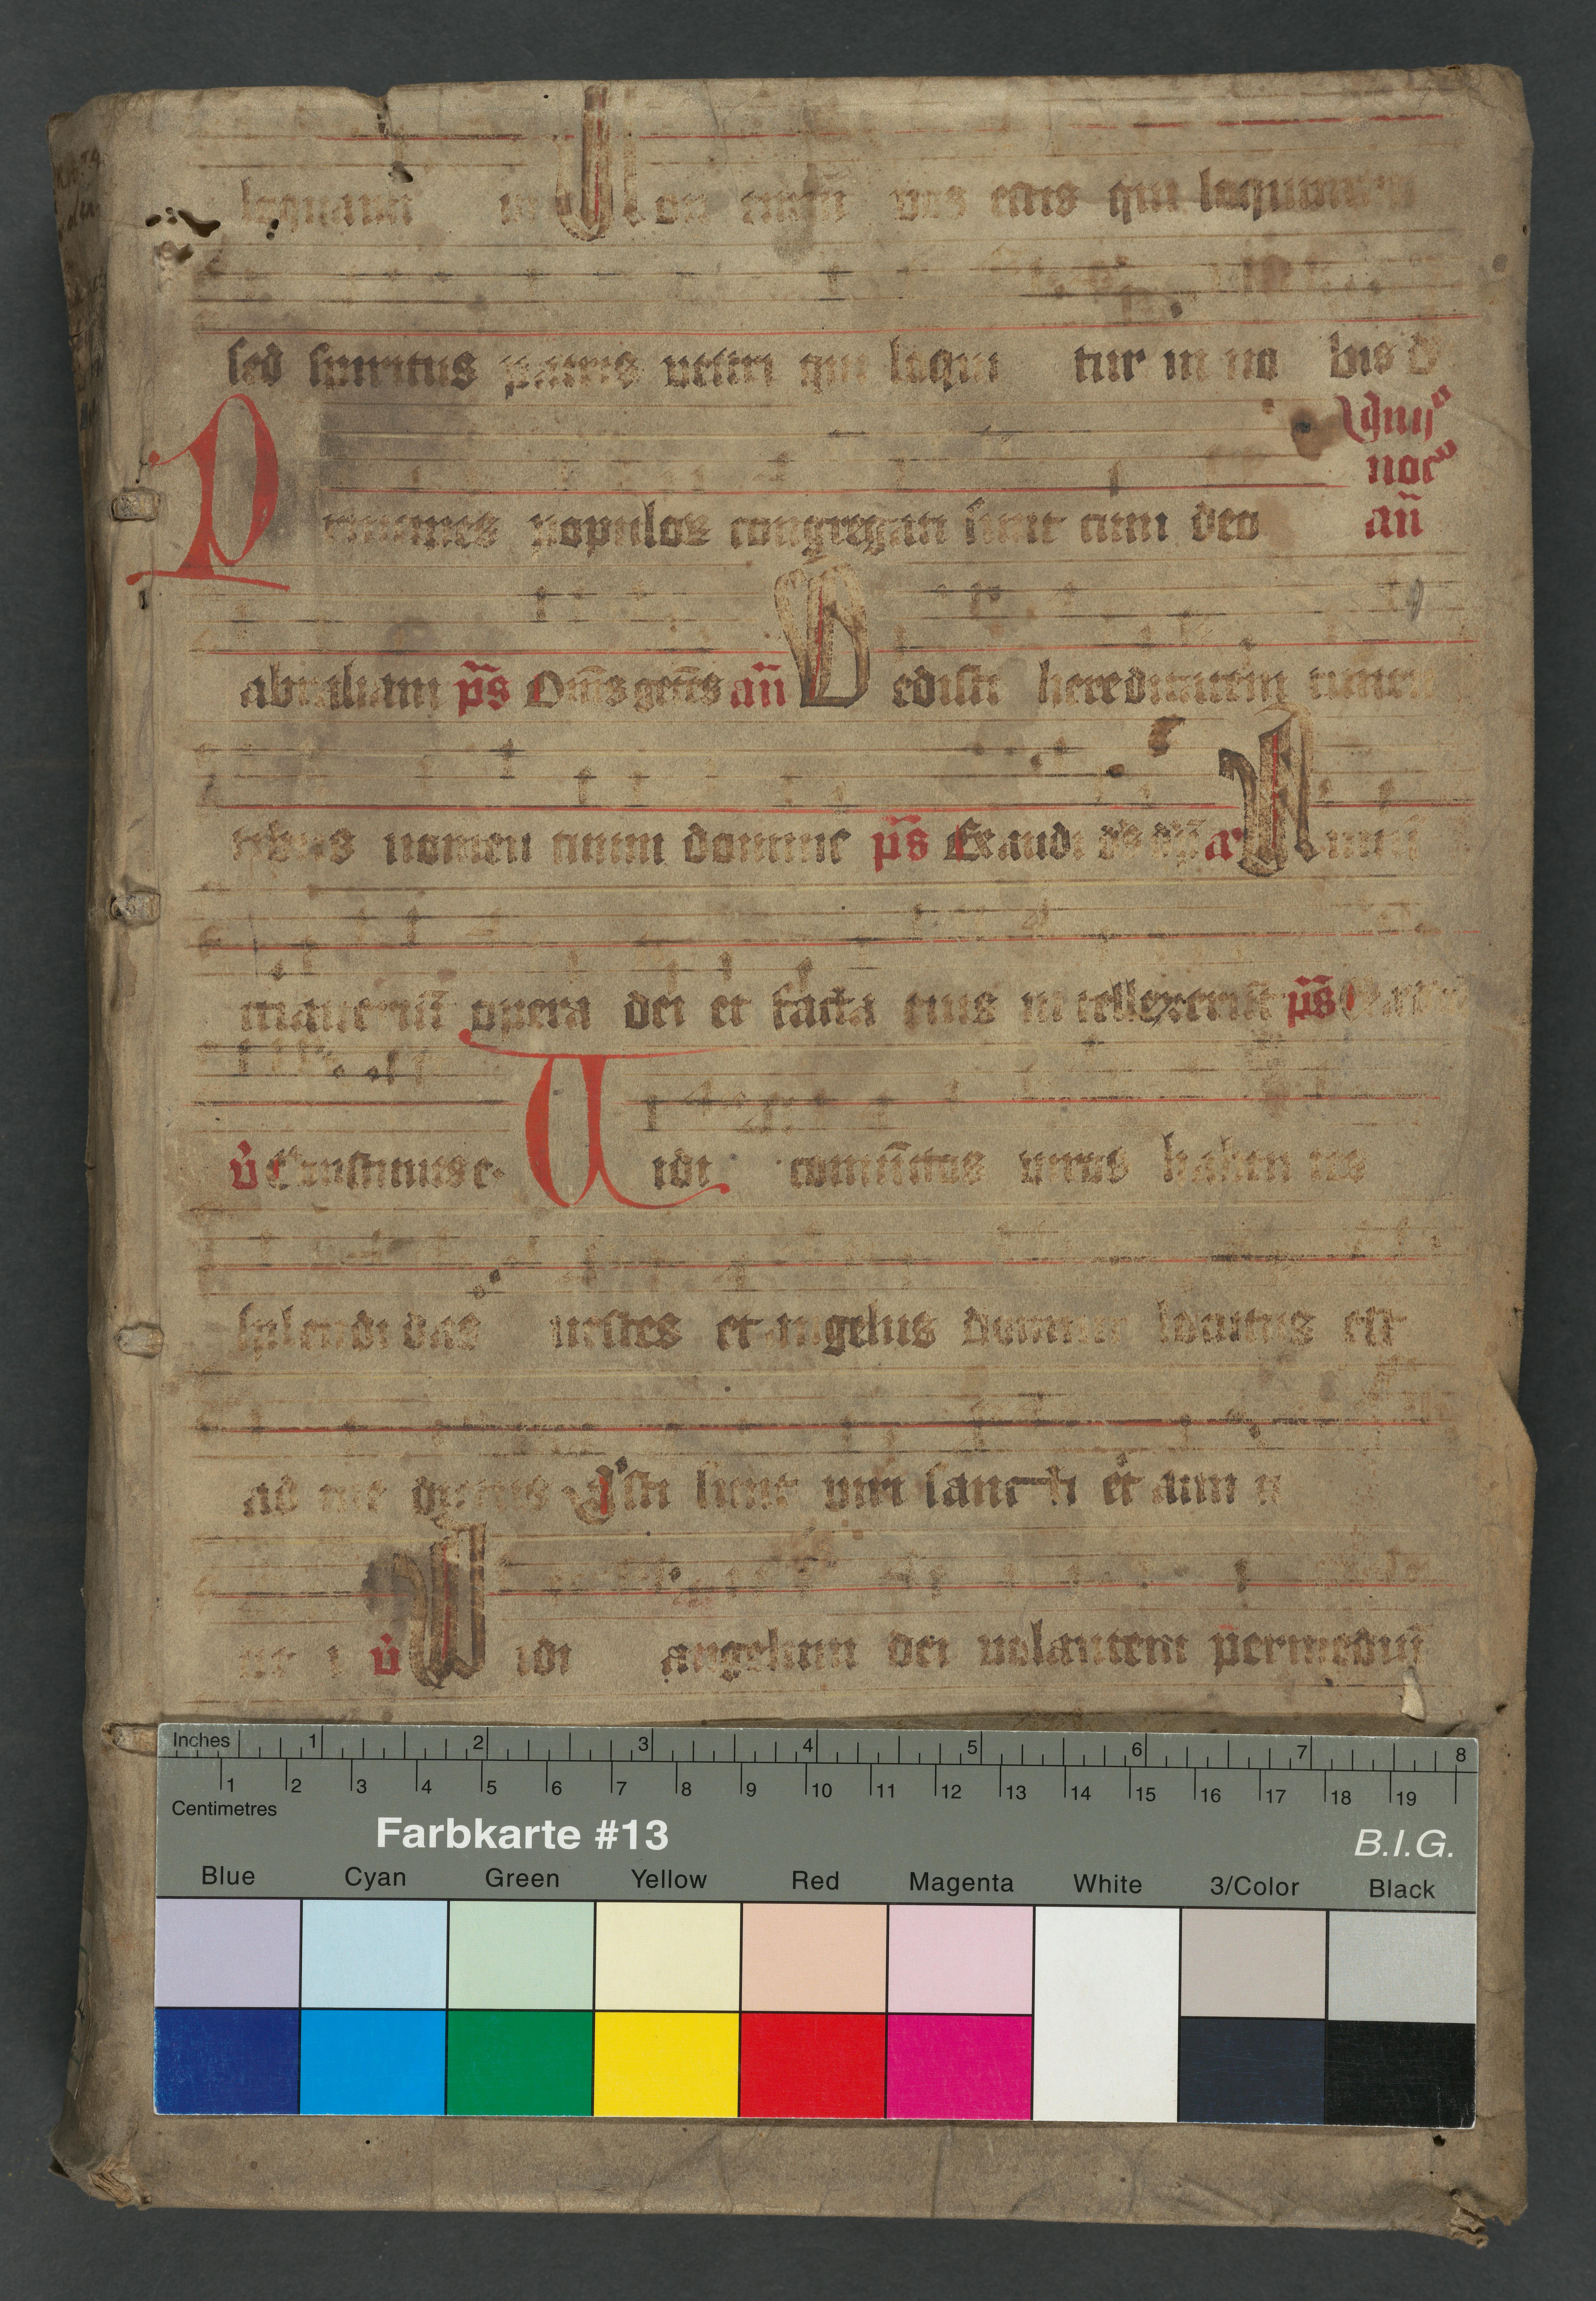 loquamini in Non enim vos estis qui loquimini
sed spiritus patris vestri qui loqui tur in uo bis d
In ijº
noc
añ
Principes populorum congregati sunt cum deo
abraham p̄s Om̄s gēt̄s añ Dedisti hereditatem timen
tibus nomen tuum domine p̄s Exaudi d's a Annūci
auerūt opera dei et facta eius in tellexerūt p̄s
v̇ Constitues e. Uidi coniūctos viros habentes
splendidas uestes et angelus domini locutus est
ad me dicens Isti sunt viri sanc ti et ami ci
v̇ Vidi angelum dei volantem per mediū
Inches 1 2 3 4 5 6 7 8
1 2 3 4 5 6 7 8 9 10 11 12 13 14 15 16 17 18 19
Centimetres
Farbkarte #13 B.I.G.
Blue Cyan Green Yellow Red Magenta White 3/Color Black